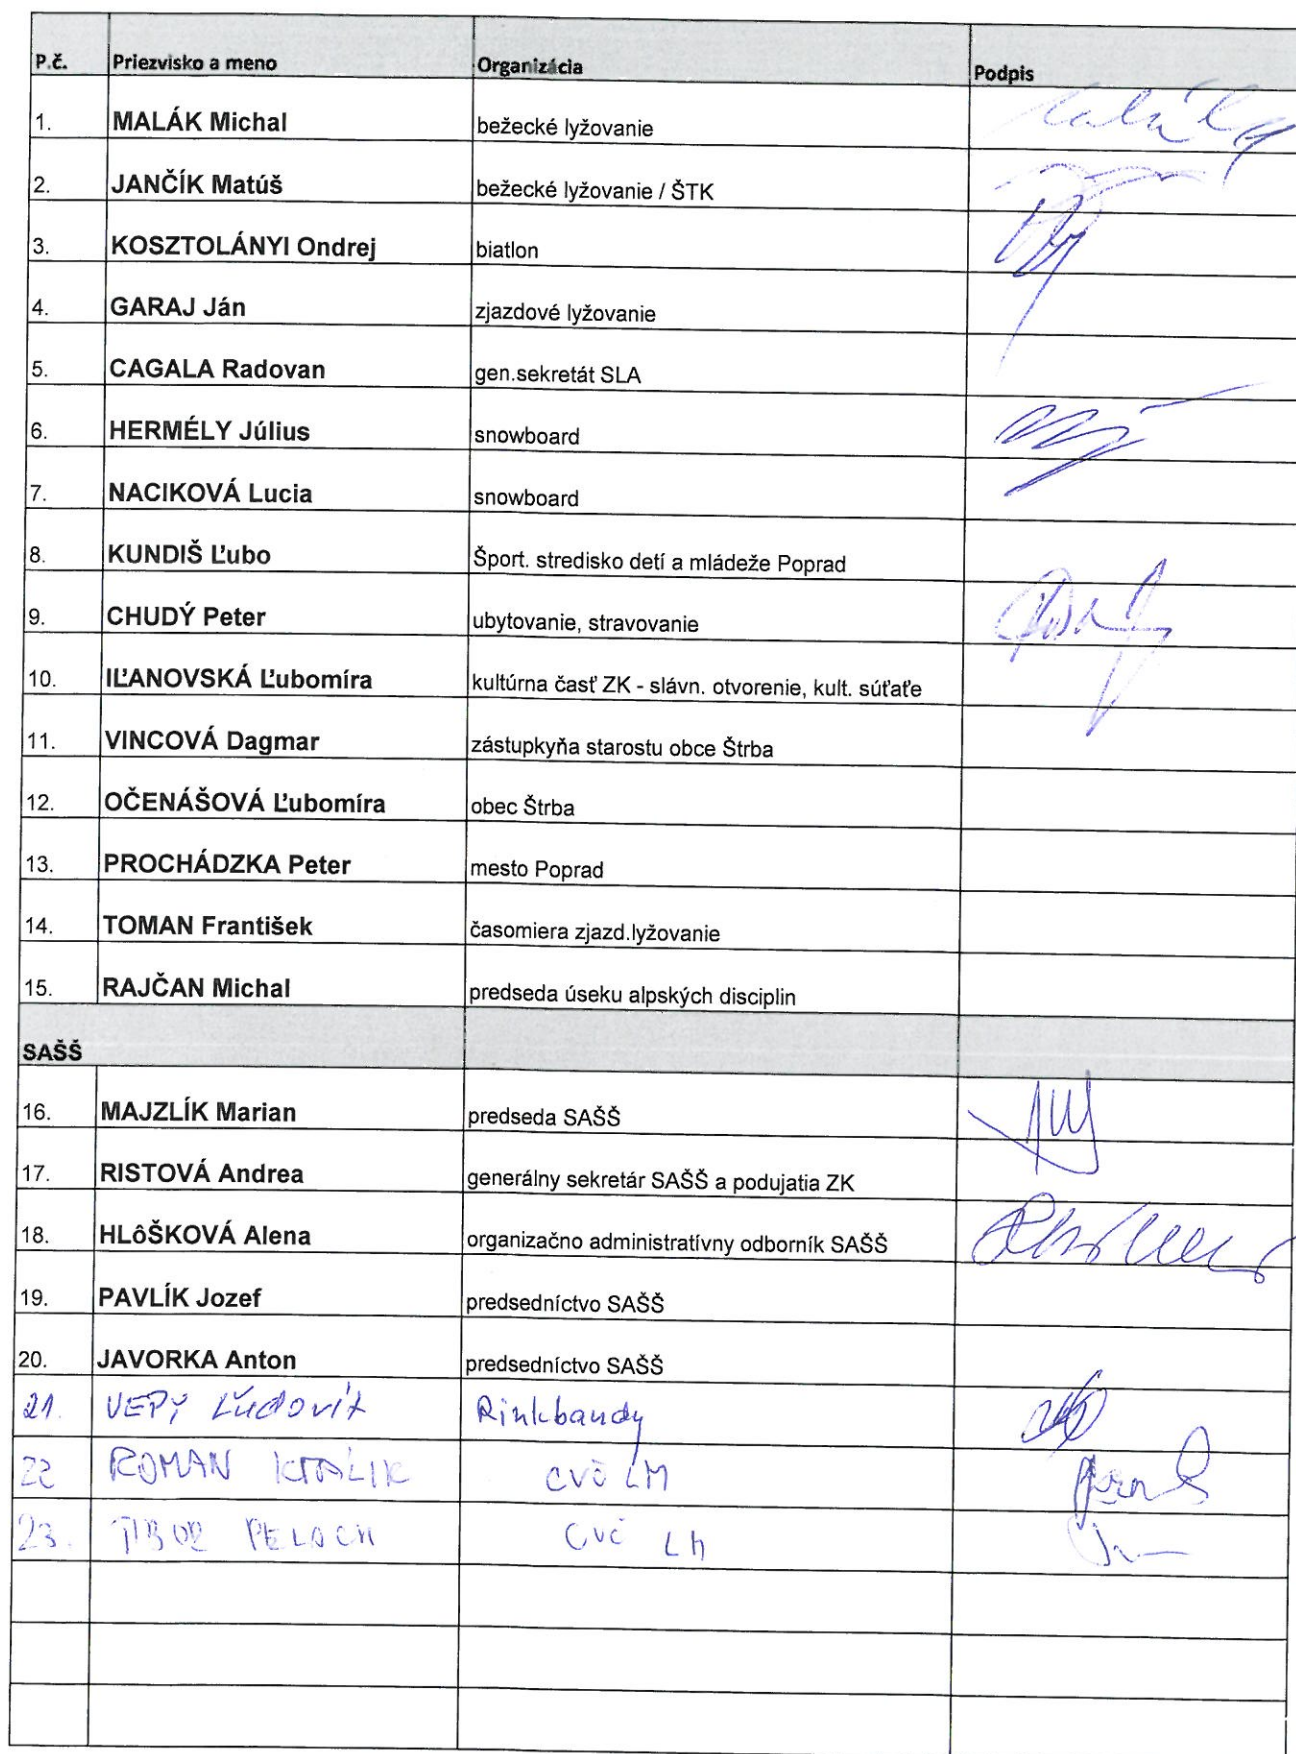 P.č. Priezvisko a meno Organizácia Podpis
1. MALÁK Michal bežecké lyžovanie
2. JANČÍK Matúš bežecké lyžovanie / ŠTK
3. KOSZTOLÁNYI Ondrej biatlon
4. GARAJ Ján zjazdové lyžovanie
5. CAGALA Radovan gen.sekretát SLA
6. HERMÉLY Július snowboard
7. NACIKOVÁ Lucia snowboard
8. KUNDIŠ Ľubo Šport. stredisko detí a mládeže Poprad
9. CHUDÝ Peter ubytovanie, stravovanie
10. IĽANOVSKÁ Ľubomíra kultúrna časť ZK - slávn. otvorenie, kult. súťaťe
11. VINCOVÁ Dagmar zástupkyňa starostu obce Štrba
12. OČENÁŠOVÁ Ľubomíra obec Štrba
13. PROCHÁDZKA Peter mesto Poprad
14. TOMAN František časomiera zjazd.lyžovanie
15. RAJČAN Michal predseda úseku alpských disciplin
SAŠŠ
16. MAJZLÍK Marian predseda SAŠŠ
17. RISTOVÁ Andrea generálny sekretár SAŠŠ a podujatia ZK
18. HLôŠKOVÁ Alena organizačno administratívny odborník SAŠŠ
19. PAVLÍK Jozef predsedníctvo SAŠŠ
20. JAVORKA Anton predsedníctvo SAŠŠ
21. VEPY Ľudovít Rinkbandy
22 ROMAN KRÁLIK CVČ LM
23. TIBOR PELACH CVČ LM